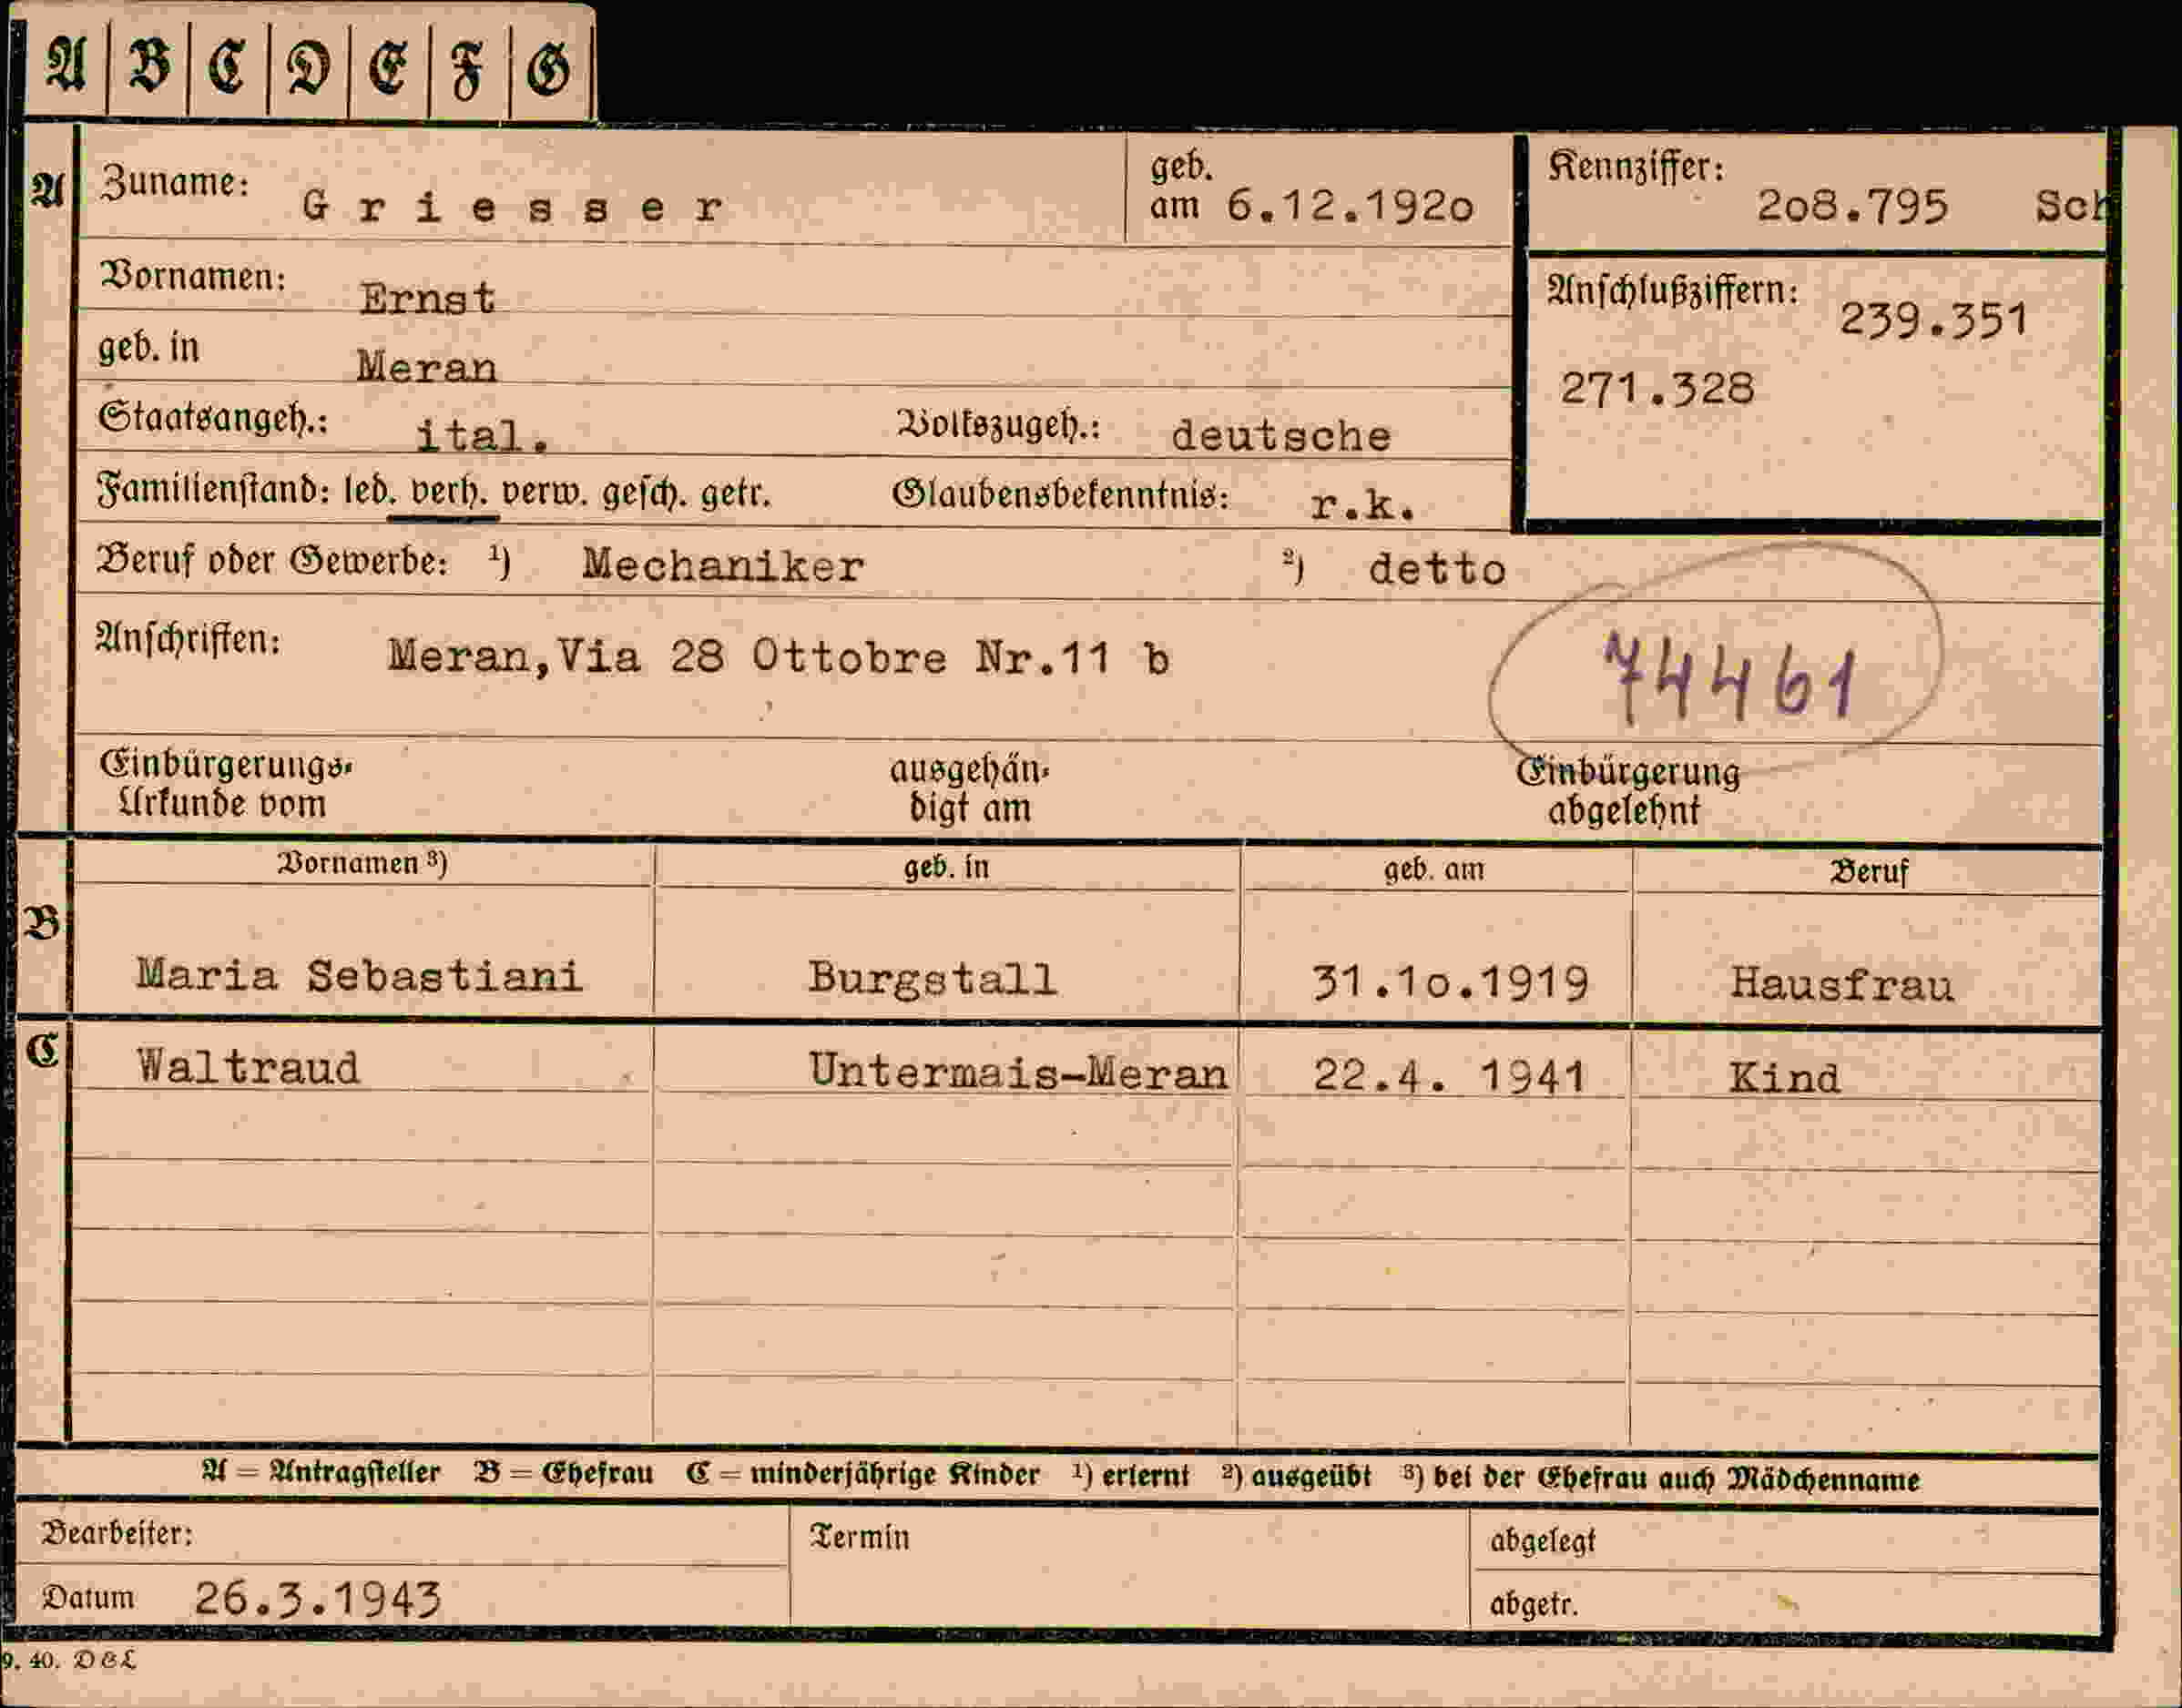 A B C D E F G
A Zuname: Griesser geb. am 6.12.1920 Kennziffer: 208.795 Sch
Vornamen: Ernst Anschlußziffern: 239.351
geb. in Meran 271.328
Staatsangeh.: ital. Volkszugeh.: deutsche
Familienstand: led. verh. verw. gesch. getr. Glaubensbekenntnis: r.k.
Beruf oder Gewerbe: ¹) Mechaniker ²) detto
Anschriften: Meran, Via 28 Ottobre Nr.11 b 74461
Einbürgerungs- ausgehän- Einbürgerung
Urkunde vom digt am abgelehnt
Vornamen ³) geb. in geb. am Beruf
B Maria Sebastiani Burgstall 31.10.1919 Hausfrau
C Waltraud Untermais-Meran 22.4. 1941 Kind
A = Antragsteller B = Ehefrau C = minderjährige Kinder ¹) erlernt ²) ausgeübt ³) bei der Ehefrau auch Mädchenname
Bearbeiter: Termin abgelegt
Datum 26.3.1943 abgetr.
9. 40. DBL